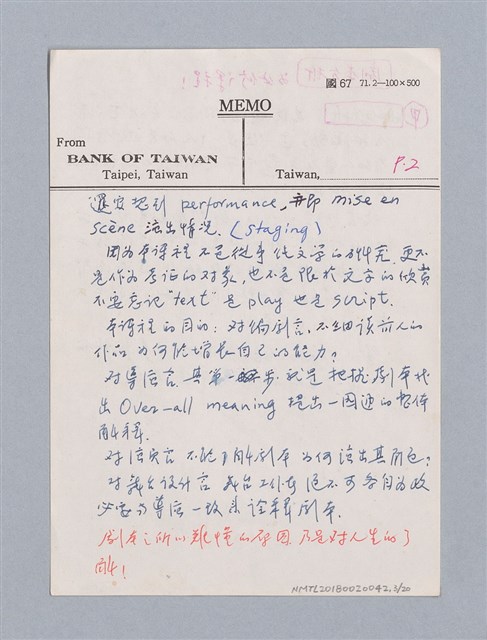 國 67 71.2—100×500
MEMO
From
BANK OF TAIWAN
Taipei, Taiwan
Taiwan,
P.2
還需想到 performance, 亦即 mise en
scène 演出情況. (staging)
因為本課程不是從事於文學的研究, 更不
是作為考証的对象, 也不是限於文字的欣賞
不要忘记 "text" 是 play 也是 script.
本課程的目的: 对编劇言, 不细读前人的
作品为何能增長自己的能力?
对導演言, 其第一步就是把握劇本找
出 Over-all meaning 提出一個廼的整体
解釋.
对演员言不能了解劇本为何演出其角色?
对舞台设计言 舞台工作者也不可各自为政
必要与導演一致去诠釋劇本.
劇本之所以難懂的原因乃是对人生的了
解!
NMTL20180020042, 3/20